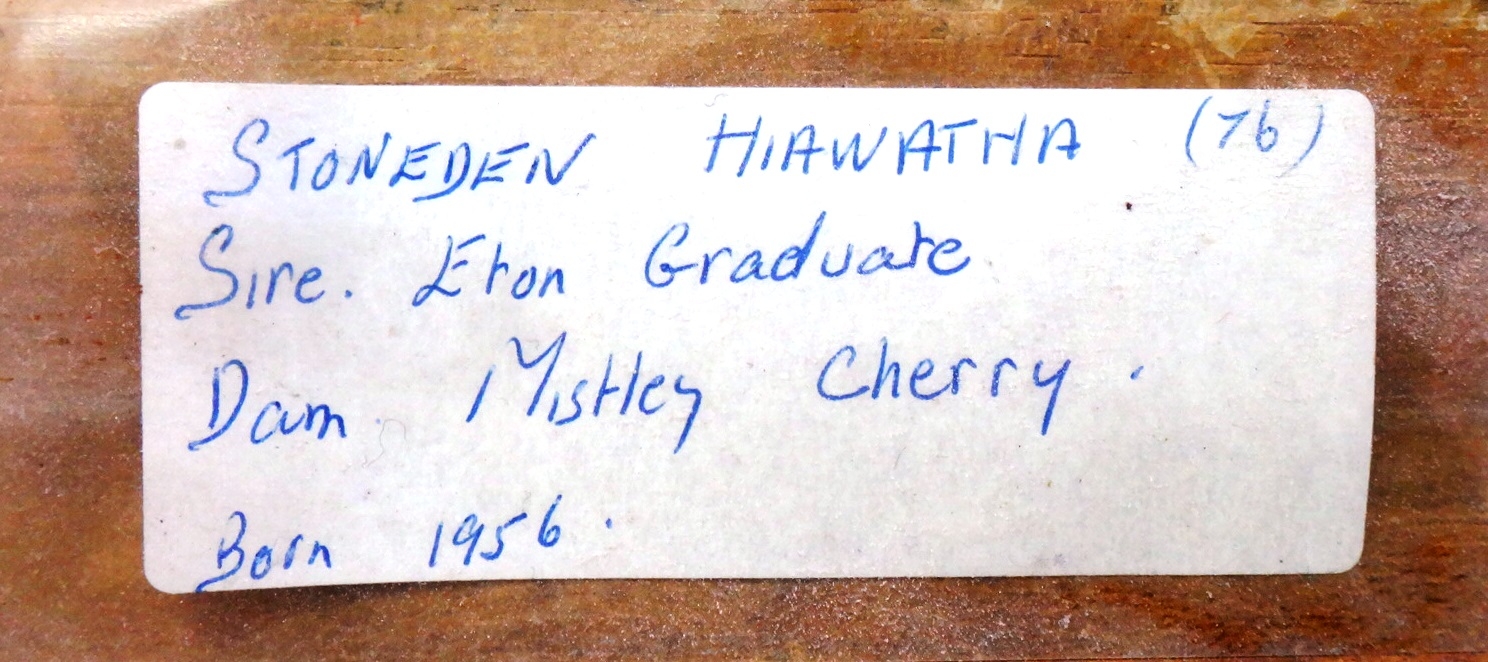 STONEDEN HIAWATHA (76)
Sire. Eton Graduate
Dam Mistley Cherry.
Born 1956.